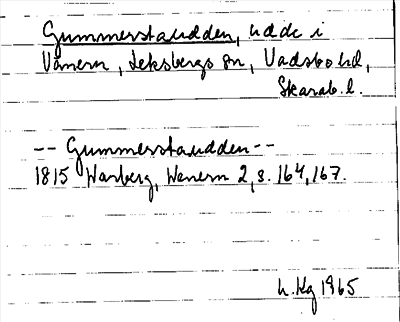 Gummerstaudden, udde i
Vänern, Leksbergs sn, Vadsbo hd,
Skarab. l.
-- Gummerstaudden --
1815 Warberg, Wenern 2, s. 164, 167.
1965